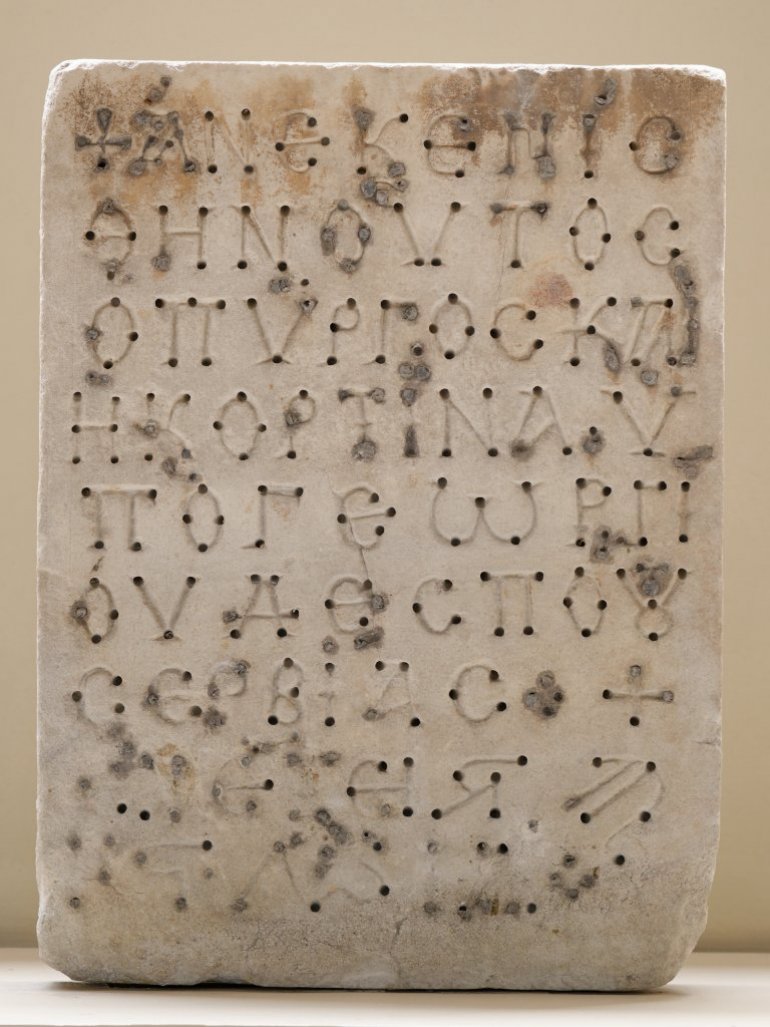 + ΑΝΕΚΕΝΙϹ
ΘΗΝΟVΤΟϹ
ΟΠVΡΓΟϹΚΑΙ
ΗΚΟΡΤΙΝΑV
ΠΟΓΕωΡΓΙ
ΟVΔΕϹΠΟΤȢ
ϹΕΡΒΙΑϹ +